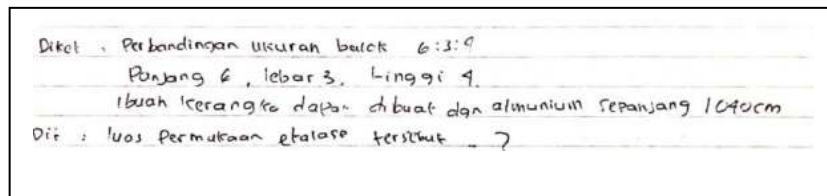 Diket : Perbandingan ukuran balok 6:3:4
Panjang 6, lebar 3, tinggi 4.
1 buah kerangka dapat dibuat dgn almunium sepanjang 1040cm
Dit : luas Permukaan etalase tersebut ?